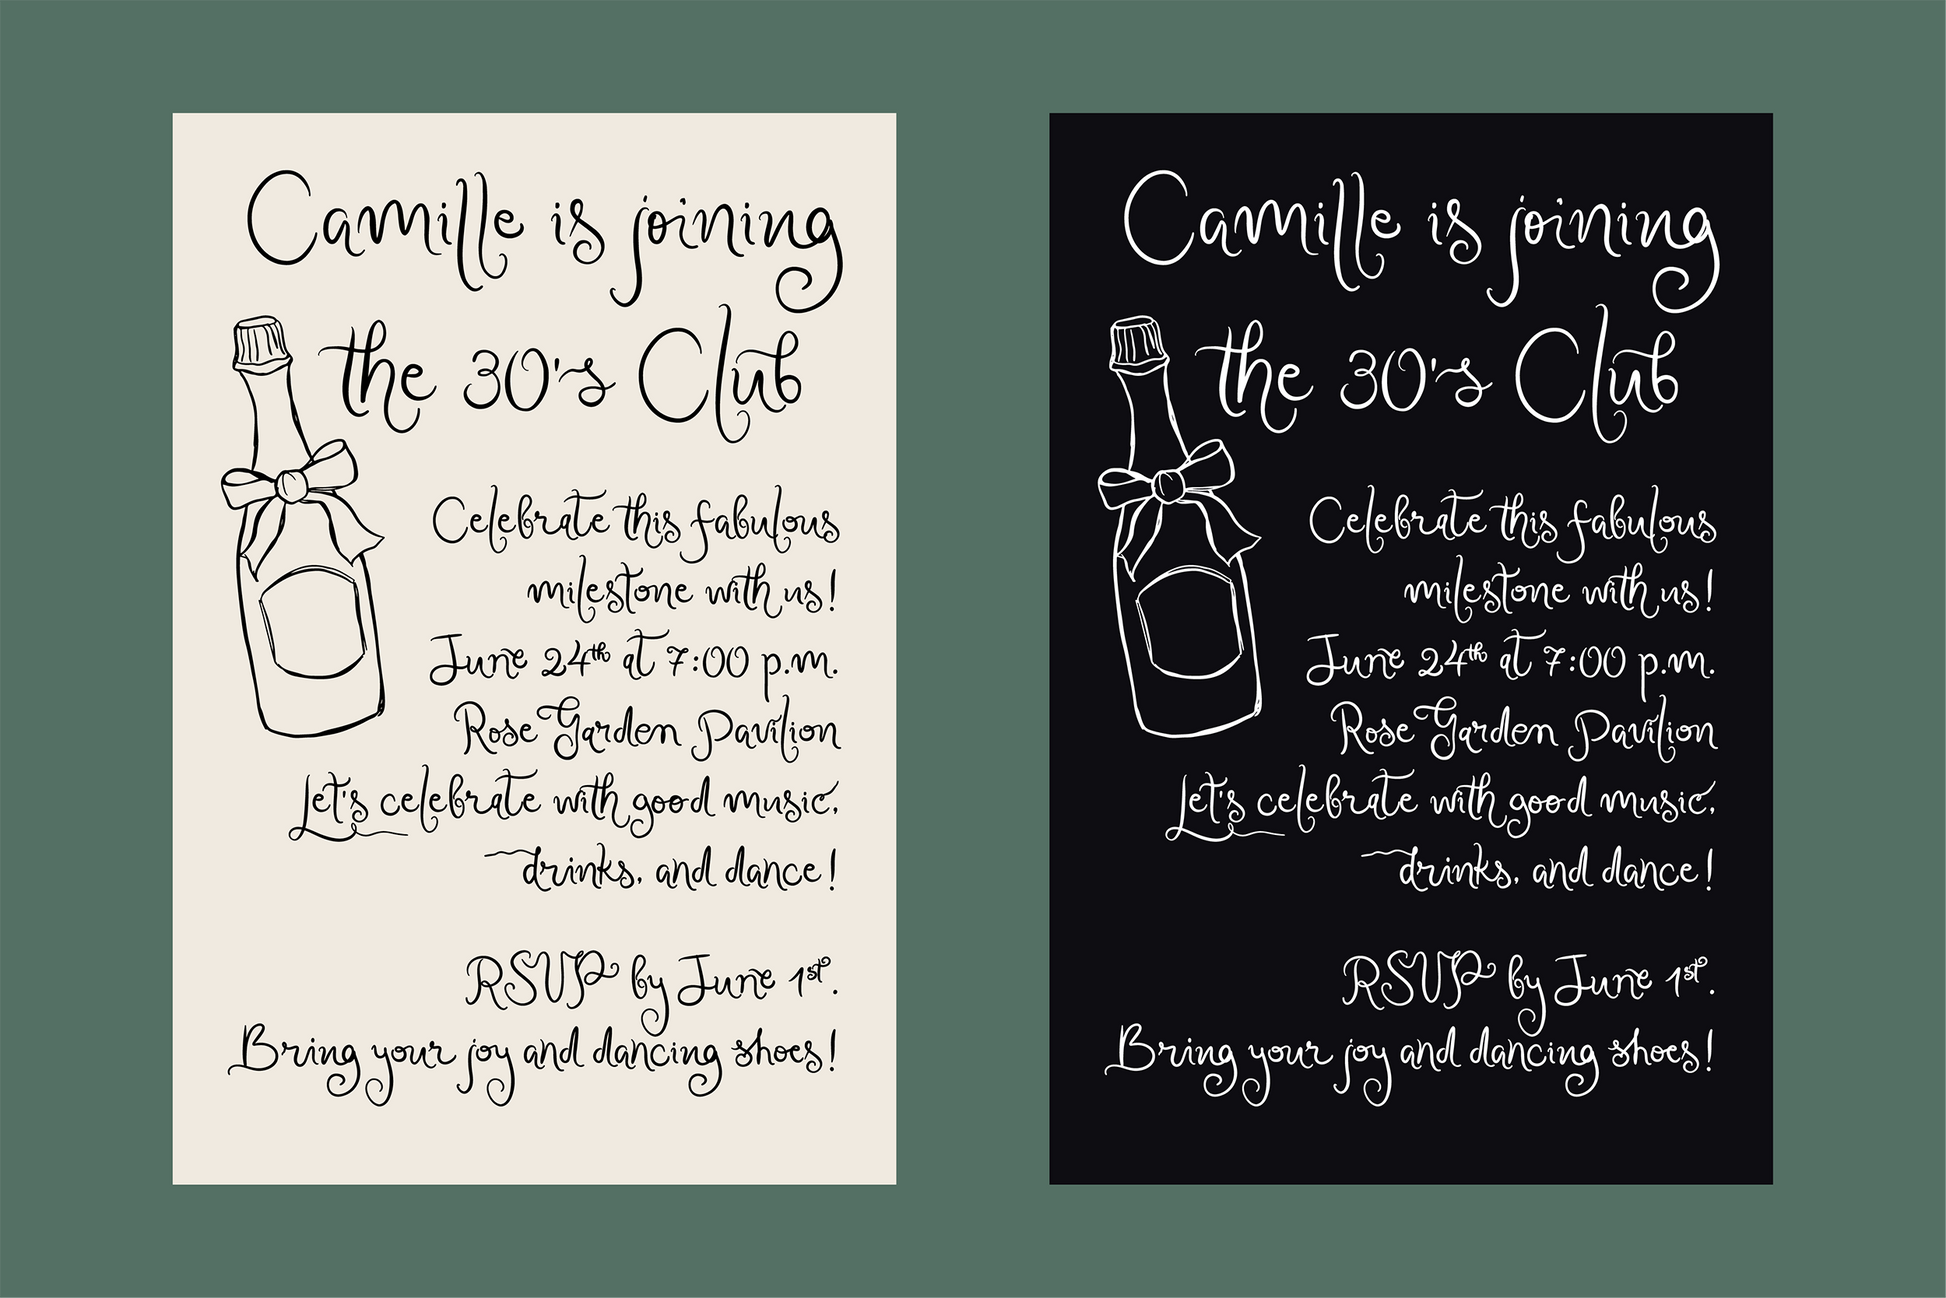 Camille is joining
the 30's Club
Celebrate this fabulous
milestone with us!
June 24th at 7:00 p.m.
Rose Garden Pavilion
Let's celebrate with good music,
drinks, and dance!
RSVP by June 1st.
Bring your joy and dancing shoes!
Camille is joining
the 30's Club
Celebrate this fabulous
milestone with us!
June 24th at 7:00 p.m.
Rose Garden Pavilion
Let's celebrate with good music,
drinks, and dance!
RSVP by June 1st.
Bring your joy and dancing shoes!